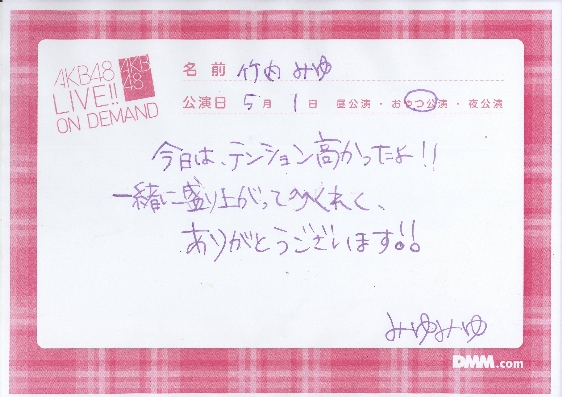 AKB48
LIVE!!
ON DEMAND
AKB
48
名前 竹内 みゆ
公演日 5月 1日 昼公演・おやつ公演・夜公演
今日は、テンション高かったよ!!
一緒に盛り上がってくれて、
ありがとうございます!!
みゆみゆ
DMM.com